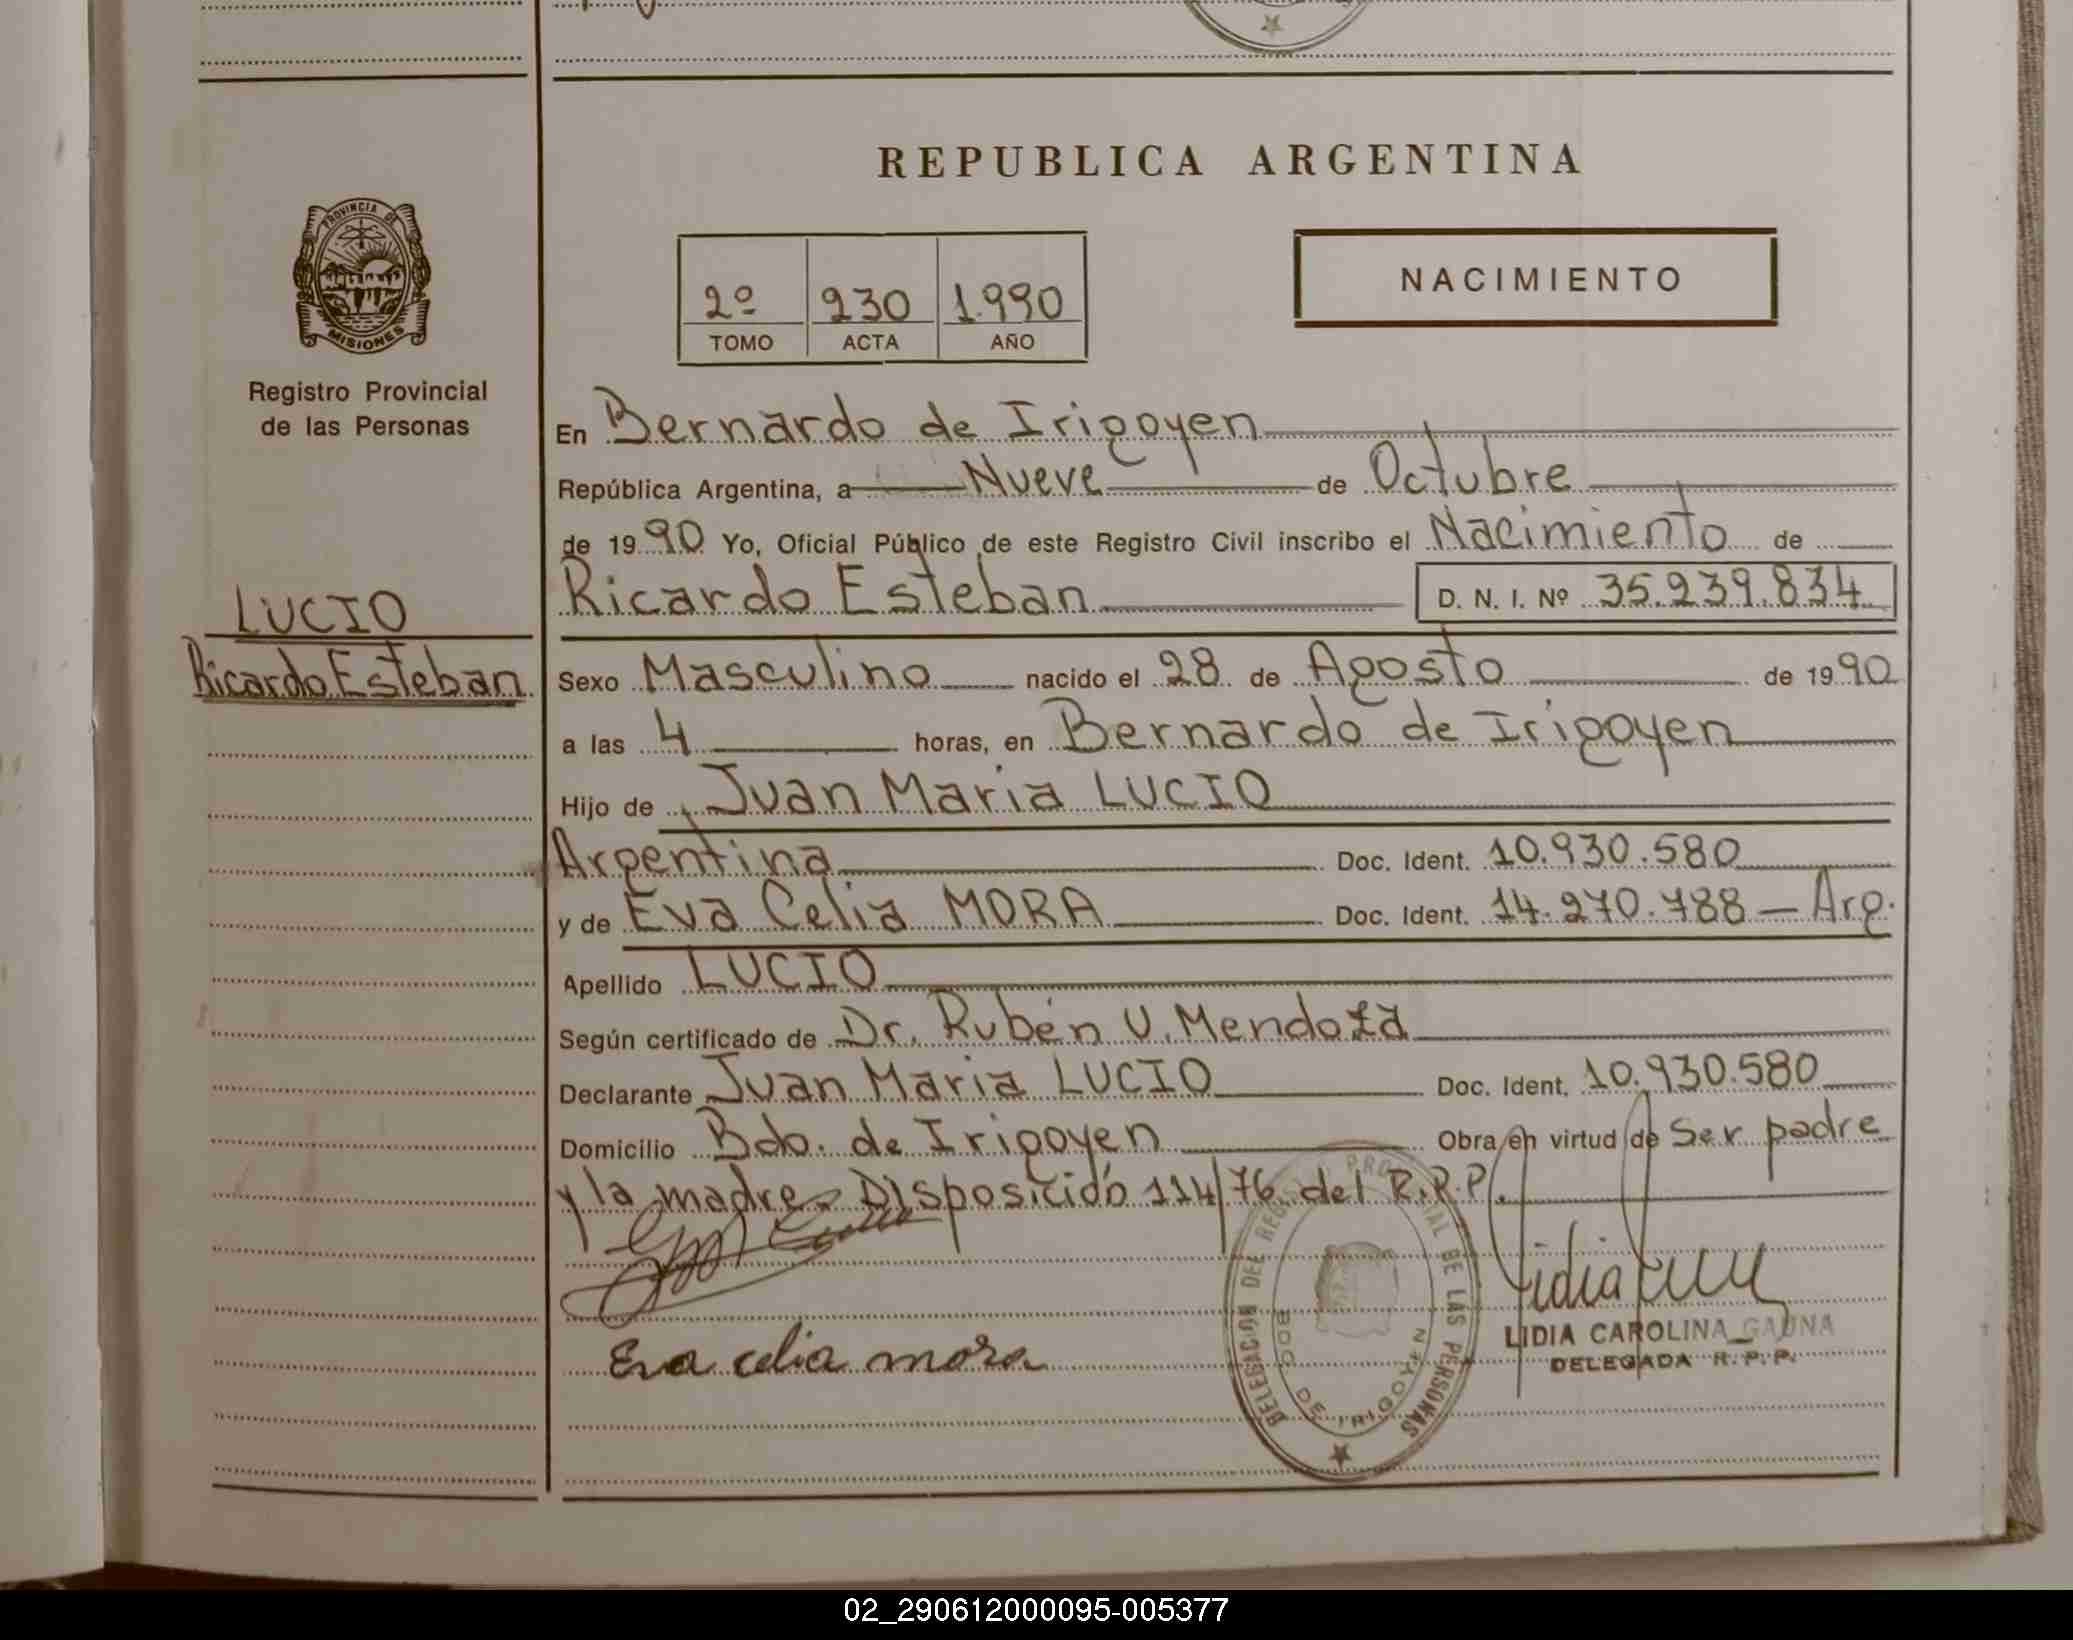 REPUBLICA ARGENTINA
PROVINCIA DE
MISIONES
Registro Provincial
de las Personas
2º 230 1.990
TOMO ACTA AÑO
NACIMIENTO
En Bernardo de Irigoyen
República Argentina, a Nueve de Octubre
de 1990 Yo, Oficial Público de este Registro Civil inscribo el Nacimiento de
Ricardo Esteban D. N. I. Nº 35.239.834
LUCIO
Ricardo Esteban
Sexo Masculino nacido el 28 de Agosto de 1990
a las 4 horas, en Bernardo de Irigoyen
Hijo de Juan Maria LUCIO
Argentina Doc. Ident. 10.930.580
y de Eva Celia MORA Doc. Ident. 14.270.788 — Arg.
Apellido LUCIO
Según certificado de Dr. Rubén V. Mendoza
Declarante Juan Maria LUCIO Doc. Ident. 10.930.580
Domicilio Bdo. de Irigoyen Obra en virtud de Ser padre
y la madre Disposició 114/76 del R.R.P.
Eva celia mora
DELEGACION DEL REGISTRO PROVINCIAL DE LAS PERSONAS
BDO. DE IRIGOYEN
LIDIA CAROLINA GAUNA
DELEGADA R.P.P.
02_290612000095-005377